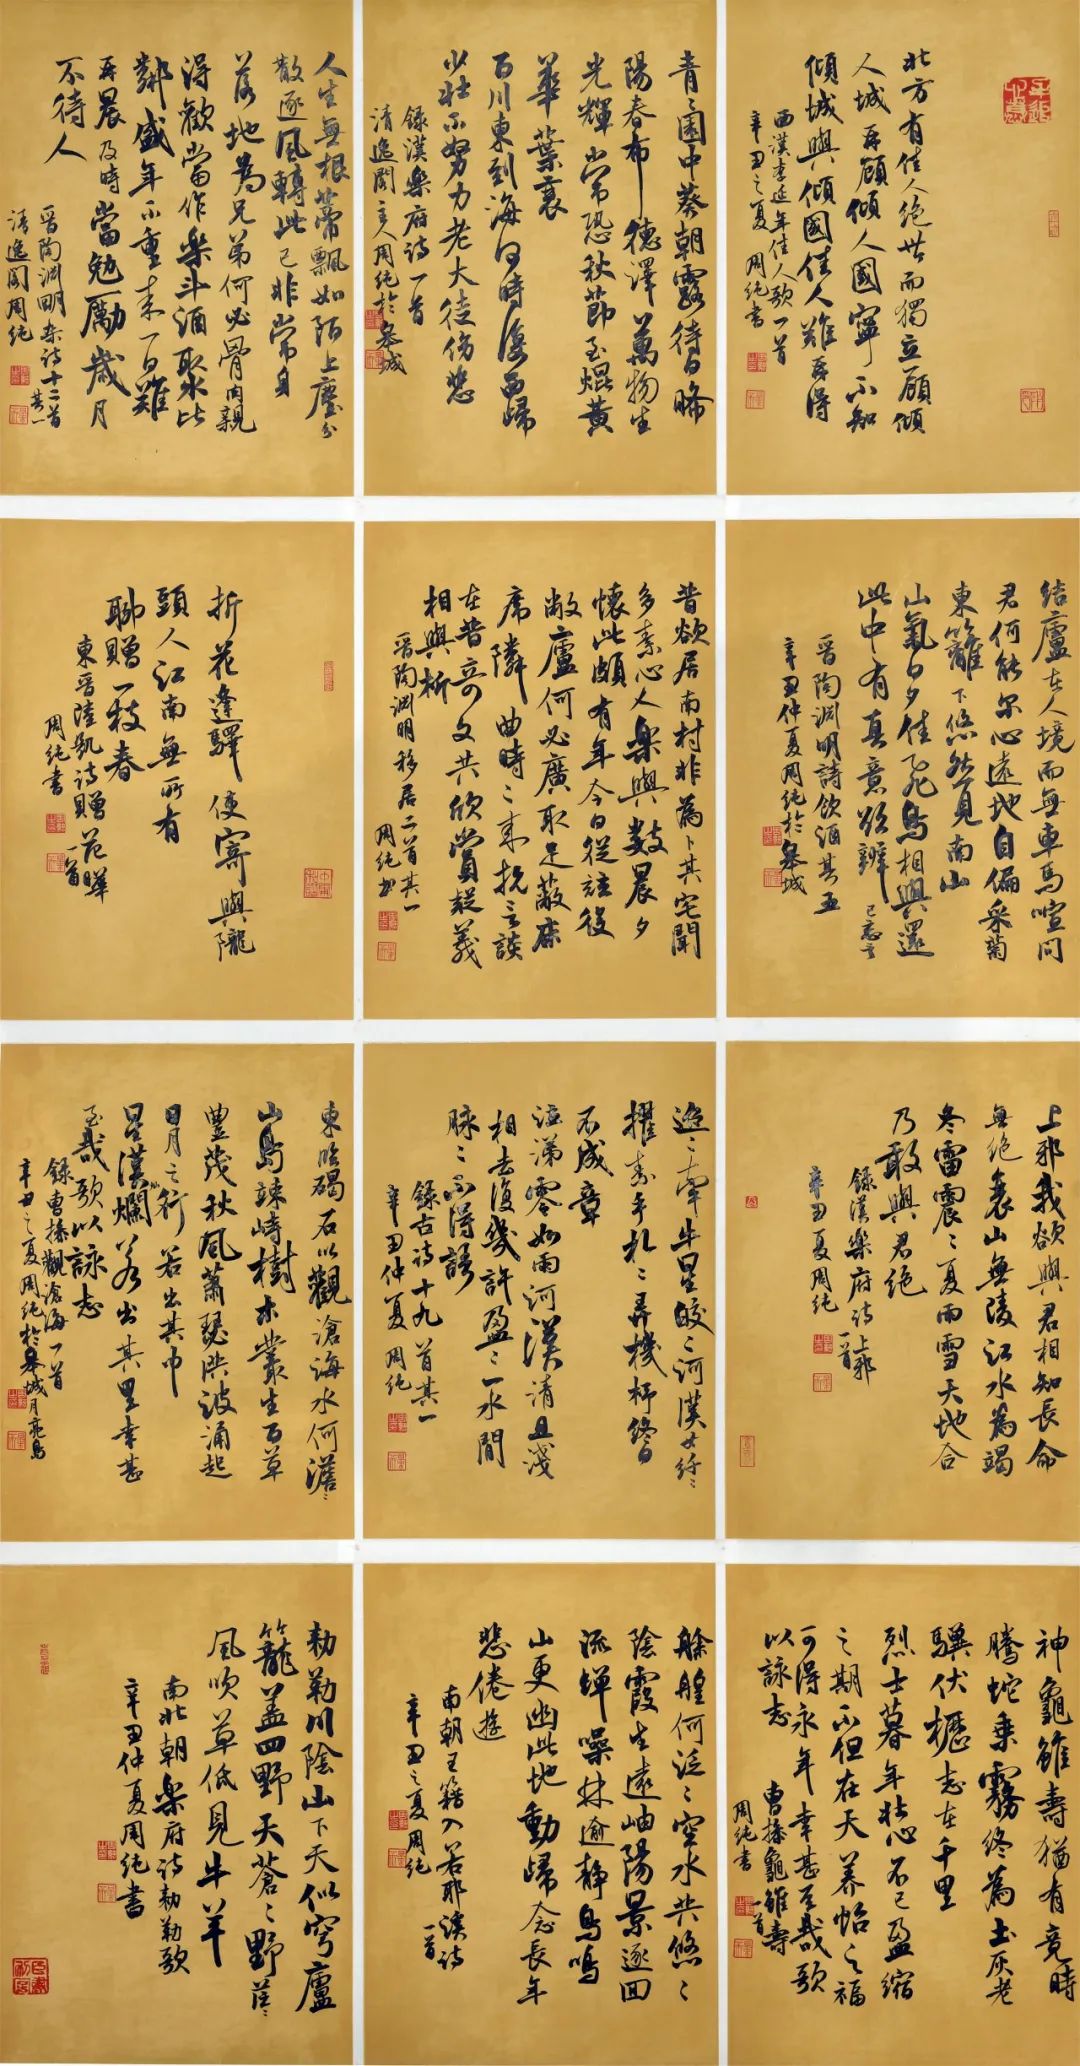 北方有佳人绝世而獨立顧傾
人城再顧傾人國寧不知
傾城與傾國佳人難再得
西漢李延年佳人歌一首
辛丑之夏周純書
青〻園中葵朝露待日晞
陽春布德澤萬物生
光輝常恐秋節至焜黄
華葉衰
百川東到海何時復西歸
少壯不努力老大徒伤悲
錄漢樂府诗一首
清逸閣主人周純於皋城
人生無根蒂飄如陌上塵分
散逐風轉此已非常身
落地為兄弟何必骨肉親
得歡當作樂斗酒聚比
鄰盛年不重来一日難
再晨及時當勉勵歲月
不待人
晋陶淵明杂诗十二首其一
清逸阁周純
结廬在人境而無車馬喧问
君何能尔心遠地自偏采菊
東籬下悠然見南山
山氣日夕佳飛鳥相與還
此中有真意欲辨已忘言
晋陶渊明詩饮酒其五
辛丑仲夏周純於皋城
昔欲居南村非為卜其宅聞
多素心人樂與數晨夕
懷此頗有年今日從兹役
敝廬何必廣取足蔽床
席隣曲時〻来抗言談
在昔奇文共欣賞疑義
相與析
晋陶渊明移居二首其一
周純书
折花逢驛使寄與隴
頭人江南無所有
聊贈一枝春
東晋陸凱诗贈范曄一首
周純書
上邪我欲與君相知長命
無绝衰山無陵江水為竭
冬雷震〻夏雨雪天地合
乃敢與君绝
錄漢樂府诗上邪一首
辛丑夏周純
迢〻牽牛星皎〻河漢女纤〻
擢素手札〻弄機杼终日
不成章
泣涕零如雨河漢清且淺
相去復幾許盈〻一水間
脉〻不得語
錄古诗十九首其一
辛丑仲夏周純
東临碣石以觀滄海水何澹〻
山島竦峙樹木叢生百草
豊茂秋風蕭瑟洪波涌起
日月之行若出其中
星漢燦爛若出其里幸甚
至哉歌以詠志
錄曹操觀滄海一首
辛丑之夏周純於皋城月亮島
神龜雖壽猶有竟時
騰蛇乘霧终為土灰老
驥伏櫪志在千里
烈士暮年壮心不已盈缩
之期不但在天养怡之福
可得永年幸甚至哉歌
以詠志
曹操龜雖壽一首
周純書
艅艎何泛〻空水共悠〻
陰霞生遠岫陽景逐回
流蟬噪林逾静鳥鳴
山更幽此地動歸念長年
悲倦遊
南朝王籍入若耶溪诗一首
辛丑之夏周純
勅勒川陰山下天似穹廬
籠盖四野天蒼〻野茫〻
風吹草低見牛羊
南北朝樂府诗勅勒歌
辛丑仲夏周純書